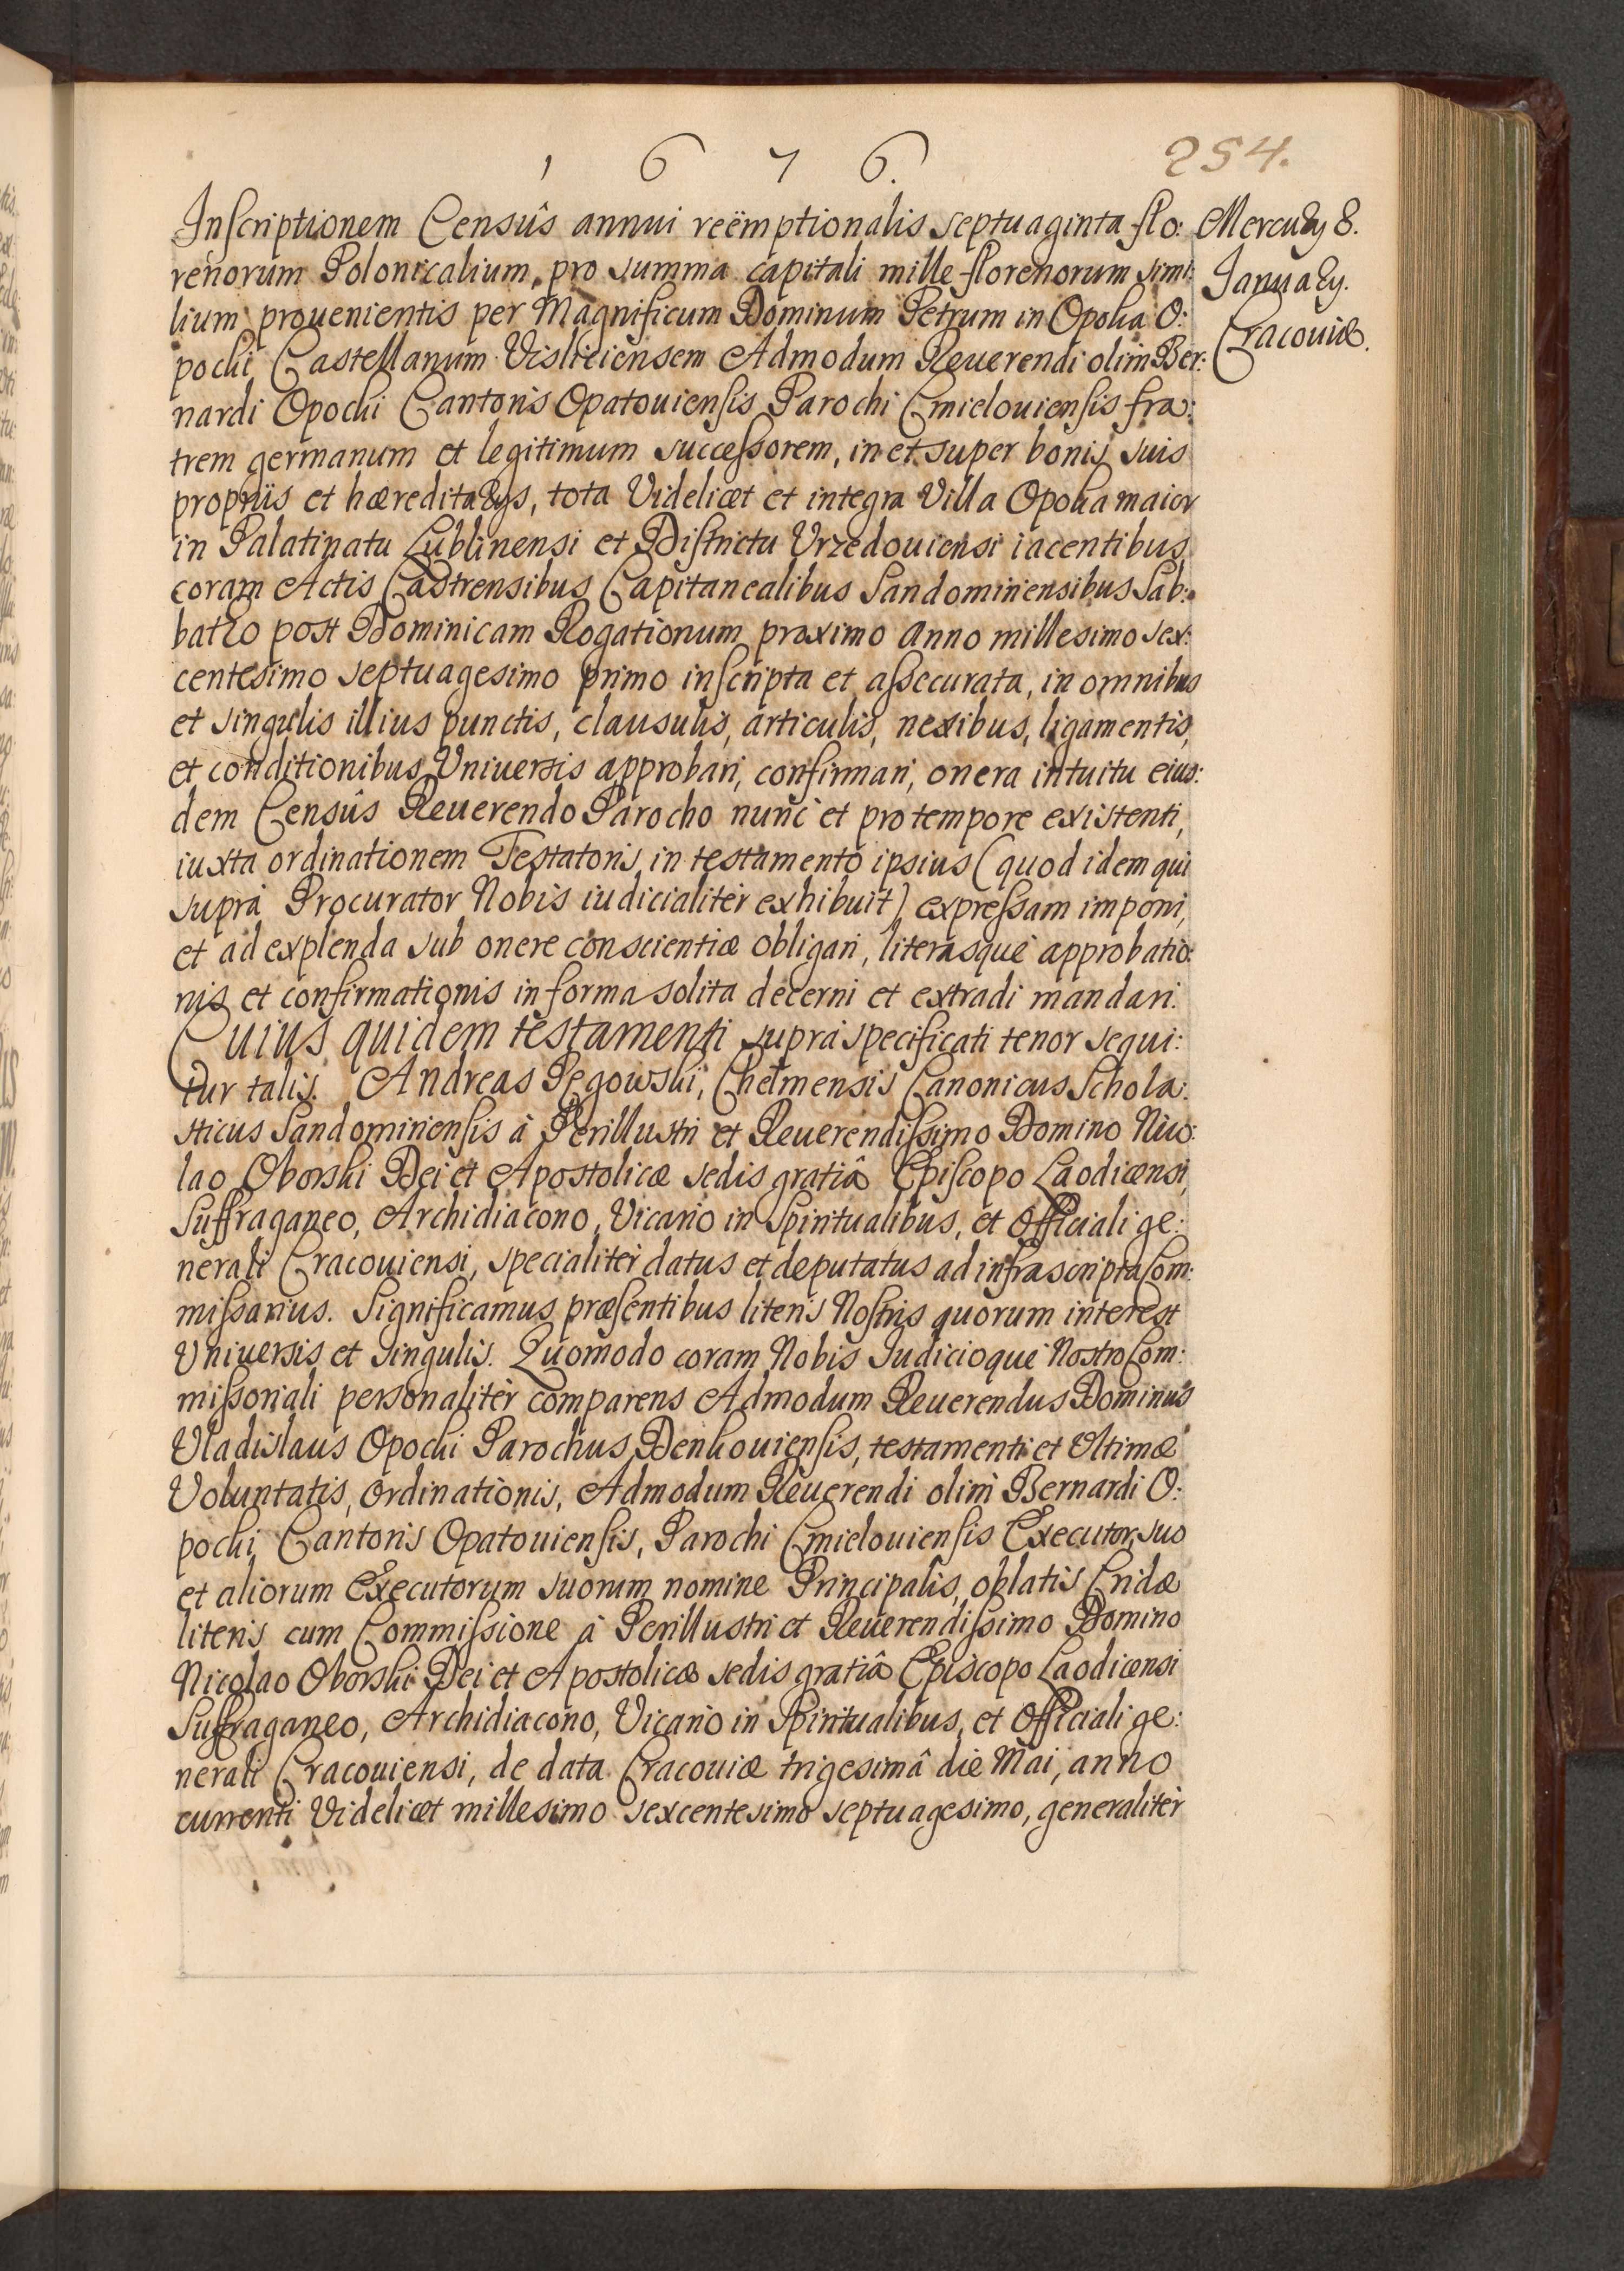 1676.
254.
Inscriptionem Censûs annui reëmptionalis septuaginta flo:
renorum Polonicalium, pro summa capitali mille florenorum simi:
lium prouenientis per Magnificum Dominum Petrum in Opoka O:
pocki Castellanum Visliciensem Admodum Reuerendi olim Ber:
nardi Opocki Cantoris Opatouiensis Parochi Cmielouiensis fra:
trem germanum et legitimum successorem, in et super bonis suis
propriis et hæreditarys, tota Videlicet et integra Villa Opoka maior
in Palatinatu Lublinensi et Districtu Vrzedouiensi iacentibus
coram Actis Castrensibus Capitanealibus Sandomiriensibus Sab:
batho post Dominicam Rogationum proximo Anno millesimo sex:
centesimo septuagesimo primo inscripta et assecurata, in omnibus
et singulis illius punctis, clausulis, articulis, nexibus, ligamentis,
et conditionibus Vniuersis approbari, confirmari, onera intuitu eius:
dem Censûs Reuerendo Parocho nunc et pro tempore existenti,
iuxta ordinationem Testatoris in testamento ipsius (quod idem qui
supra Procurator Nobis iudicialiter exhibuit) expressam imponi,
et ad explenda sub onere conscientiæ obligari, literasque approbatio:
nis et confirmationis in forma solita decerni et extradi mandari.
Cuius quidem testamenti supra specificati tenor sequi:
tur talis. Andreas Pegowski, Chelmensis Canonicus Schola:
sticus Sandomiriensis à Perillustri et Reuerendissimo Domino Nico:
lao Oborski Dei et Apostolicæ sedis gratiâ Episcopo Laodicensi,
Suffraganeo, Archidiacono, Vicario in Spiritualibus, et Officiali ge:
nerali Cracouiensi, specialiter datus et deputatus ad infrascripta Com:
missarius. Significamus præsentibus literis Nostris quorum interest
Vniuersis et singulis. Quomodo coram Nobis Iudicioque Nostro Com:
missoriali personalitèr comparens Admodum Reuerendus Dominus
Vladislaus Opocki Parochus Denkouiensis, testamenti et Vltimæ
Voluntatis, ordinationis, Admodum Reuerendi olim Bernardi O:
pocki Cantoris Opatouiensis, Parochi Cmielouiensis Executor, suo
et aliorum Executorum suorum nomine Principalis, oblatis Cridæ
literis cum Commissione à Perillustri et Reuerendissimo Domino
Nicolao Oborski Dei et Apostolicæ sedis gratiâ Episcopo Laodicensi
Suffraganeo, Archidiacono, Vicario in Spiritualibus, et Officiali ge:
nerali Cracouiensi, de data Cracouiæ trigesimâ die Mai, anno
currenti Videlicet millesimo sexcentesimo septuagesimo, generalitèr
Mercury 8.
January.
Cracouiæ.